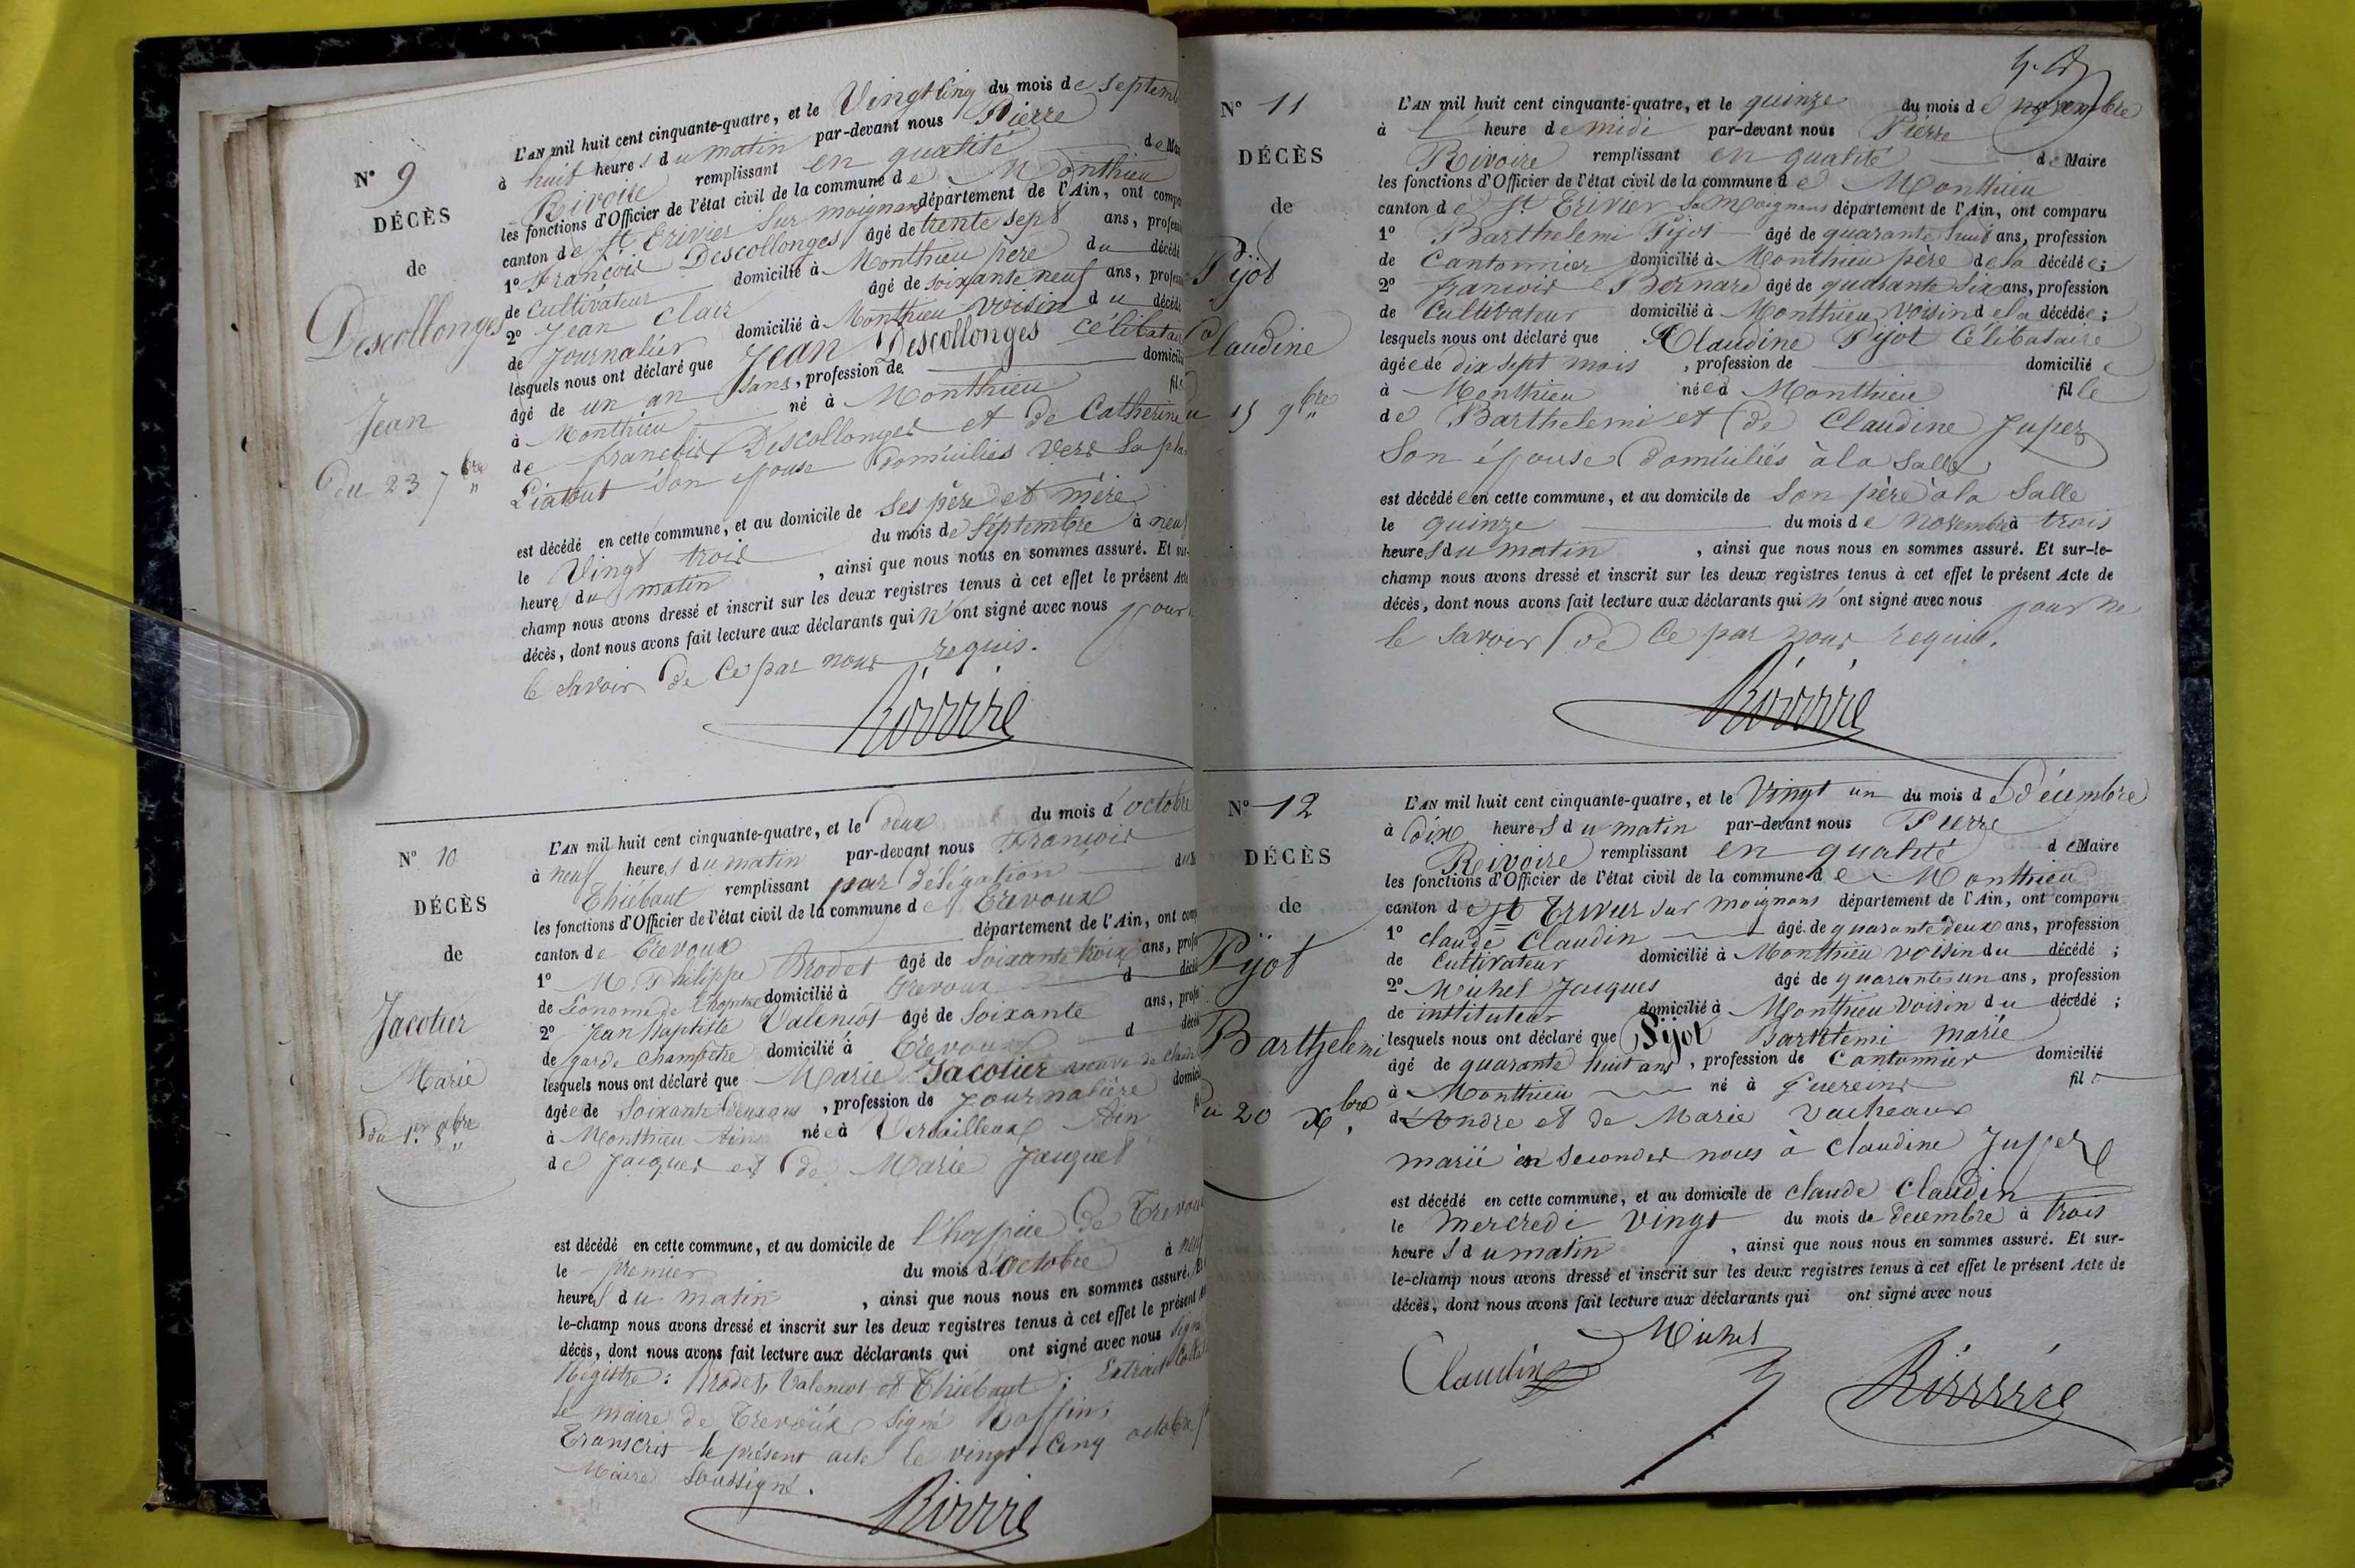 N° 9
DÉCÈS
de
Descollonges
Jean
du 23 7bre
L'AN mil huit cent cinquante-quatre, et le Vingt Cinq du mois de Septemb
à huit heures du matin par-devant nous Pierre
Rivoire remplissant en qualité de Mai
les fonctions d'Officier de l'état civil de la commune de Monthieu
canton de St Trivier sur moignans département de l'Ain, ont compa
1° François Descollonges âgé de trente sept ans, profess
de Cultivateur domicilié à Monthieu père du décédé
2° Jean Clair âgé de soixante neuf ans, profess
de Journalier domicilié à Monthieu voisin du décédé
lesquels nous ont déclaré que Jean Descollonges célibatai
âgé de un an sans, profession de domicilié
à Monthieu né à Monthieu fils
de françois Descollonges et de Catherine
Liatout son épouse domiciliés vers la pla
est décédé en cette commune, et au domicile de ses père et mère
le Vingt trois du mois de Septembre à neuf
heures du matin , ainsi que nous nous en sommes assuré. Et sur-
champ nous avons dressé et inscrit sur les deux registres tenus à cet effet le présent Acte
décès, dont nous avons fait lecture aux déclarants qui n'ont signé avec nous pour
le savoir de ce par nous requis.
Rivoire
N° 10
DÉCÈS
de
Jacotier
Marie
du 1er 8bre
L'AN mil huit cent cinquante-quatre, et le deux du mois d'octobre
à neuf heures du matin par-devant nous François
Thiébaut remplissant par délégation
les fonctions d'Officier de l'état civil de la commune de Trevoux
canton de Trevoux département de l'Ain, ont com
1° M. Philippe Brodet âgé de soixante trois ans, profe
de Econome de l'hospice domicilié à Trevoux d décé
2° Jean Baptiste Valenciot âgé de soixante ans, profe
de garde champêtre domicilié à Trevoux d décé
lesquels nous ont déclaré que Marie Jacotier veuve de Claude
âgée de soixante deux ans , profession de Journalière domici
à Monthieu Ain née à Versailleux Ain
de Jacques et de Marie Jauquet
est décédé en cette commune, et au domicile de l'hospice de Trevoux
le premier du mois d'Octobre à neuf
heures du matin , ainsi que nous nous en sommes assuré. Et
le-champ nous avons dressé et inscrit sur les deux registres tenus à cet effet le présent
décès, dont nous avons fait lecture aux déclarants qui ont signé avec nous Signé
Registre : Brodet, Valenciot et Thiébaut ; Extrait
le maire de Trevoux signé Raffin
Transcris le présent acte le vingt Cinq octobre
Maire soussigné.
Rivoire
N° 11
DÉCÈS
de
Pijot
Claudine
du 15 9bre
L'AN mil huit cent cinquante-quatre, et le quinze du mois de novembre
à heure de midi par-devant nous Pierre
Rivoire remplissant en qualité de Maire
les fonctions d'Officier de l'état civil de la commune de Monthieu
canton de St Trivier Sur Moignans département de l'Ain, ont comparu
1° Barthelemi Pijot âgé de quarante huit ans, profession
de Cantonnier domicilié à Monthieu père de la décédée ;
2° françois Bernard âgé de quarante six ans, profession
de Cultivateur domicilié à Monthieu voisin de la décédée ;
lesquels nous ont déclaré que Claudine Pijot Célibataire
âgée de dix sept mois , profession de domicilié e
à Monthieu née à Monthieu fille
de Barthelemi et de Claudine Juper
son épouse domiciliés à la Salle
est décédée en cette commune, et au domicile de son père à la Salle
le quinze du mois de novembre à trois
heures du matin , ainsi que nous nous en sommes assuré. Et sur-le-
champ nous avons dressé et inscrit sur les deux registres tenus à cet effet le présent Acte de
décès, dont nous avons fait lecture aux déclarants qui n'ont signé avec nous pour ne
le savoir de ce par nous requis.
Rivoire
N° 12
DÉCÈS
de
Pijot
Barthelemi
du 20 Xbre
L'AN mil huit cent cinquante-quatre, et le Vingt un du mois de Décembre
à dix heures du matin par-devant nous Pierre
Rivoire remplissant en qualité de Maire
les fonctions d'Officier de l'état civil de la commune de Monthieu
canton de St Trivier sur moignans département de l'Ain, ont comparu
1° Claude Claudin âgé de quarante deux ans, profession
de Cultivateur domicilié à Monthieu voisin du décédé ;
2° Michel Jacques âgé de quarante un ans, profession
de instituteur domicilié à Monthieu voisin du décédé ;
lesquels nous ont déclaré que Pijot Barthelemi marié
âgé de quarante huit ans , profession de Cantonnier domicilié
à Monthieu né à Guereins fils
d'André et de Marie Vacheaux
marié en secondes noces à Claudine Juper
est décédé en cette commune, et au domicile de Claude Claudin
le mercredi vingt du mois de decembre à trois
heures du matin , ainsi que nous nous en sommes assuré. Et sur-
le-champ nous avons dressé et inscrit sur les deux registres tenus à cet effet le présent Acte de
décès, dont nous avons fait lecture aux déclarants qui ont signé avec nous
Claudin Michel Rivoire